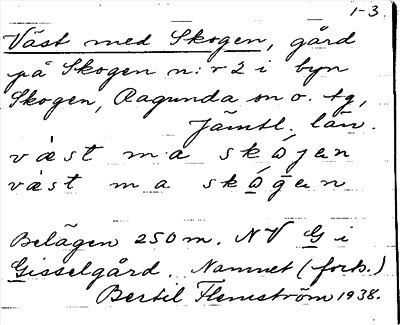 1-3.
Väst med Skogen, gård
på Skogen n:r 2 i byn
Skogen, Ragunda sn o. tg,
Jämtl. län.
væst m a skå̀jen
væst m a skå̀gen
Belägen 250 m. NV G i
Gisselgård. Namnet (forts.)
Bertil Flemström 1938.